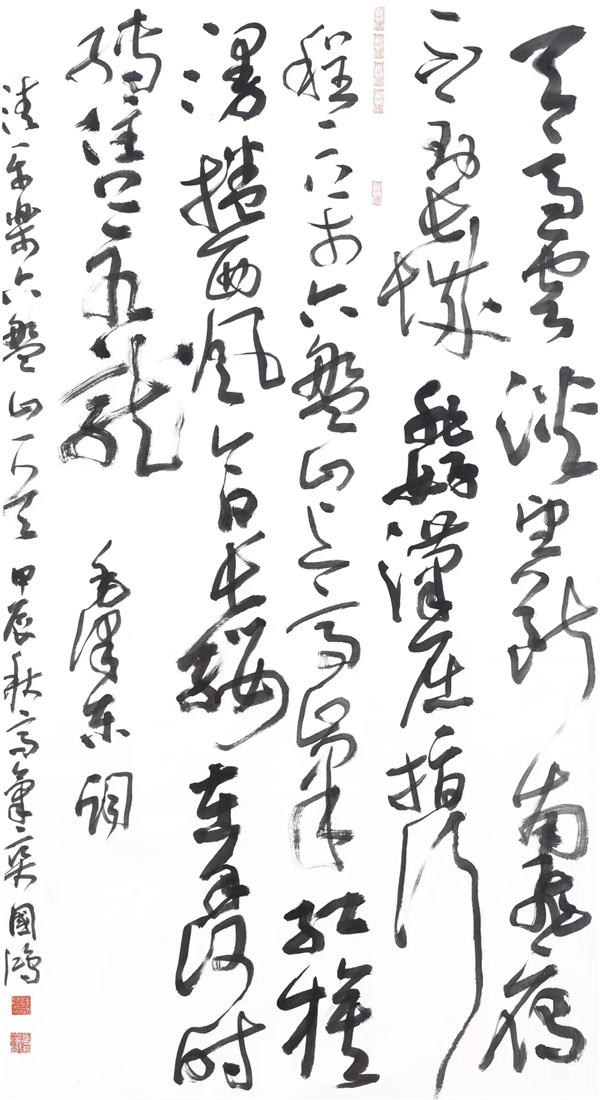 天高雲淡望斷南飛雁
不到長城非好漢屈指行
程二万六盤山上高峯紅旗
漫捲西風今日長纓在手何時
縛住蒼龍毛澤東詞
清平樂六盤山甲辰秋高氣爽國鴻